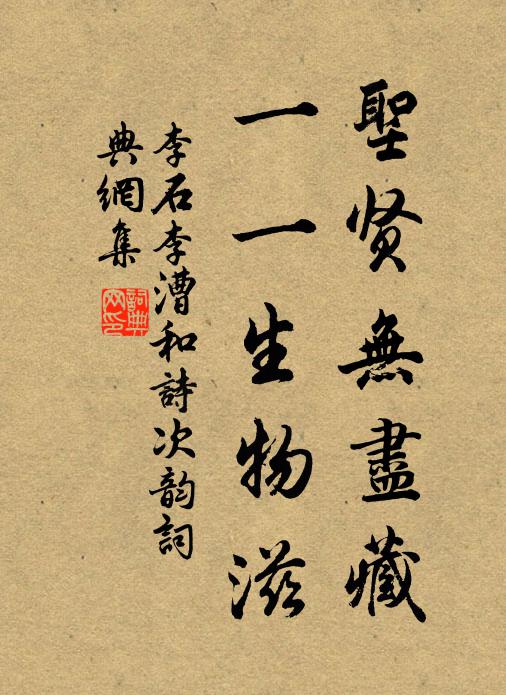 聖贤無盡藏
一一生物滋
李石李漕和詩次韵詞
典網集
詞典
网印